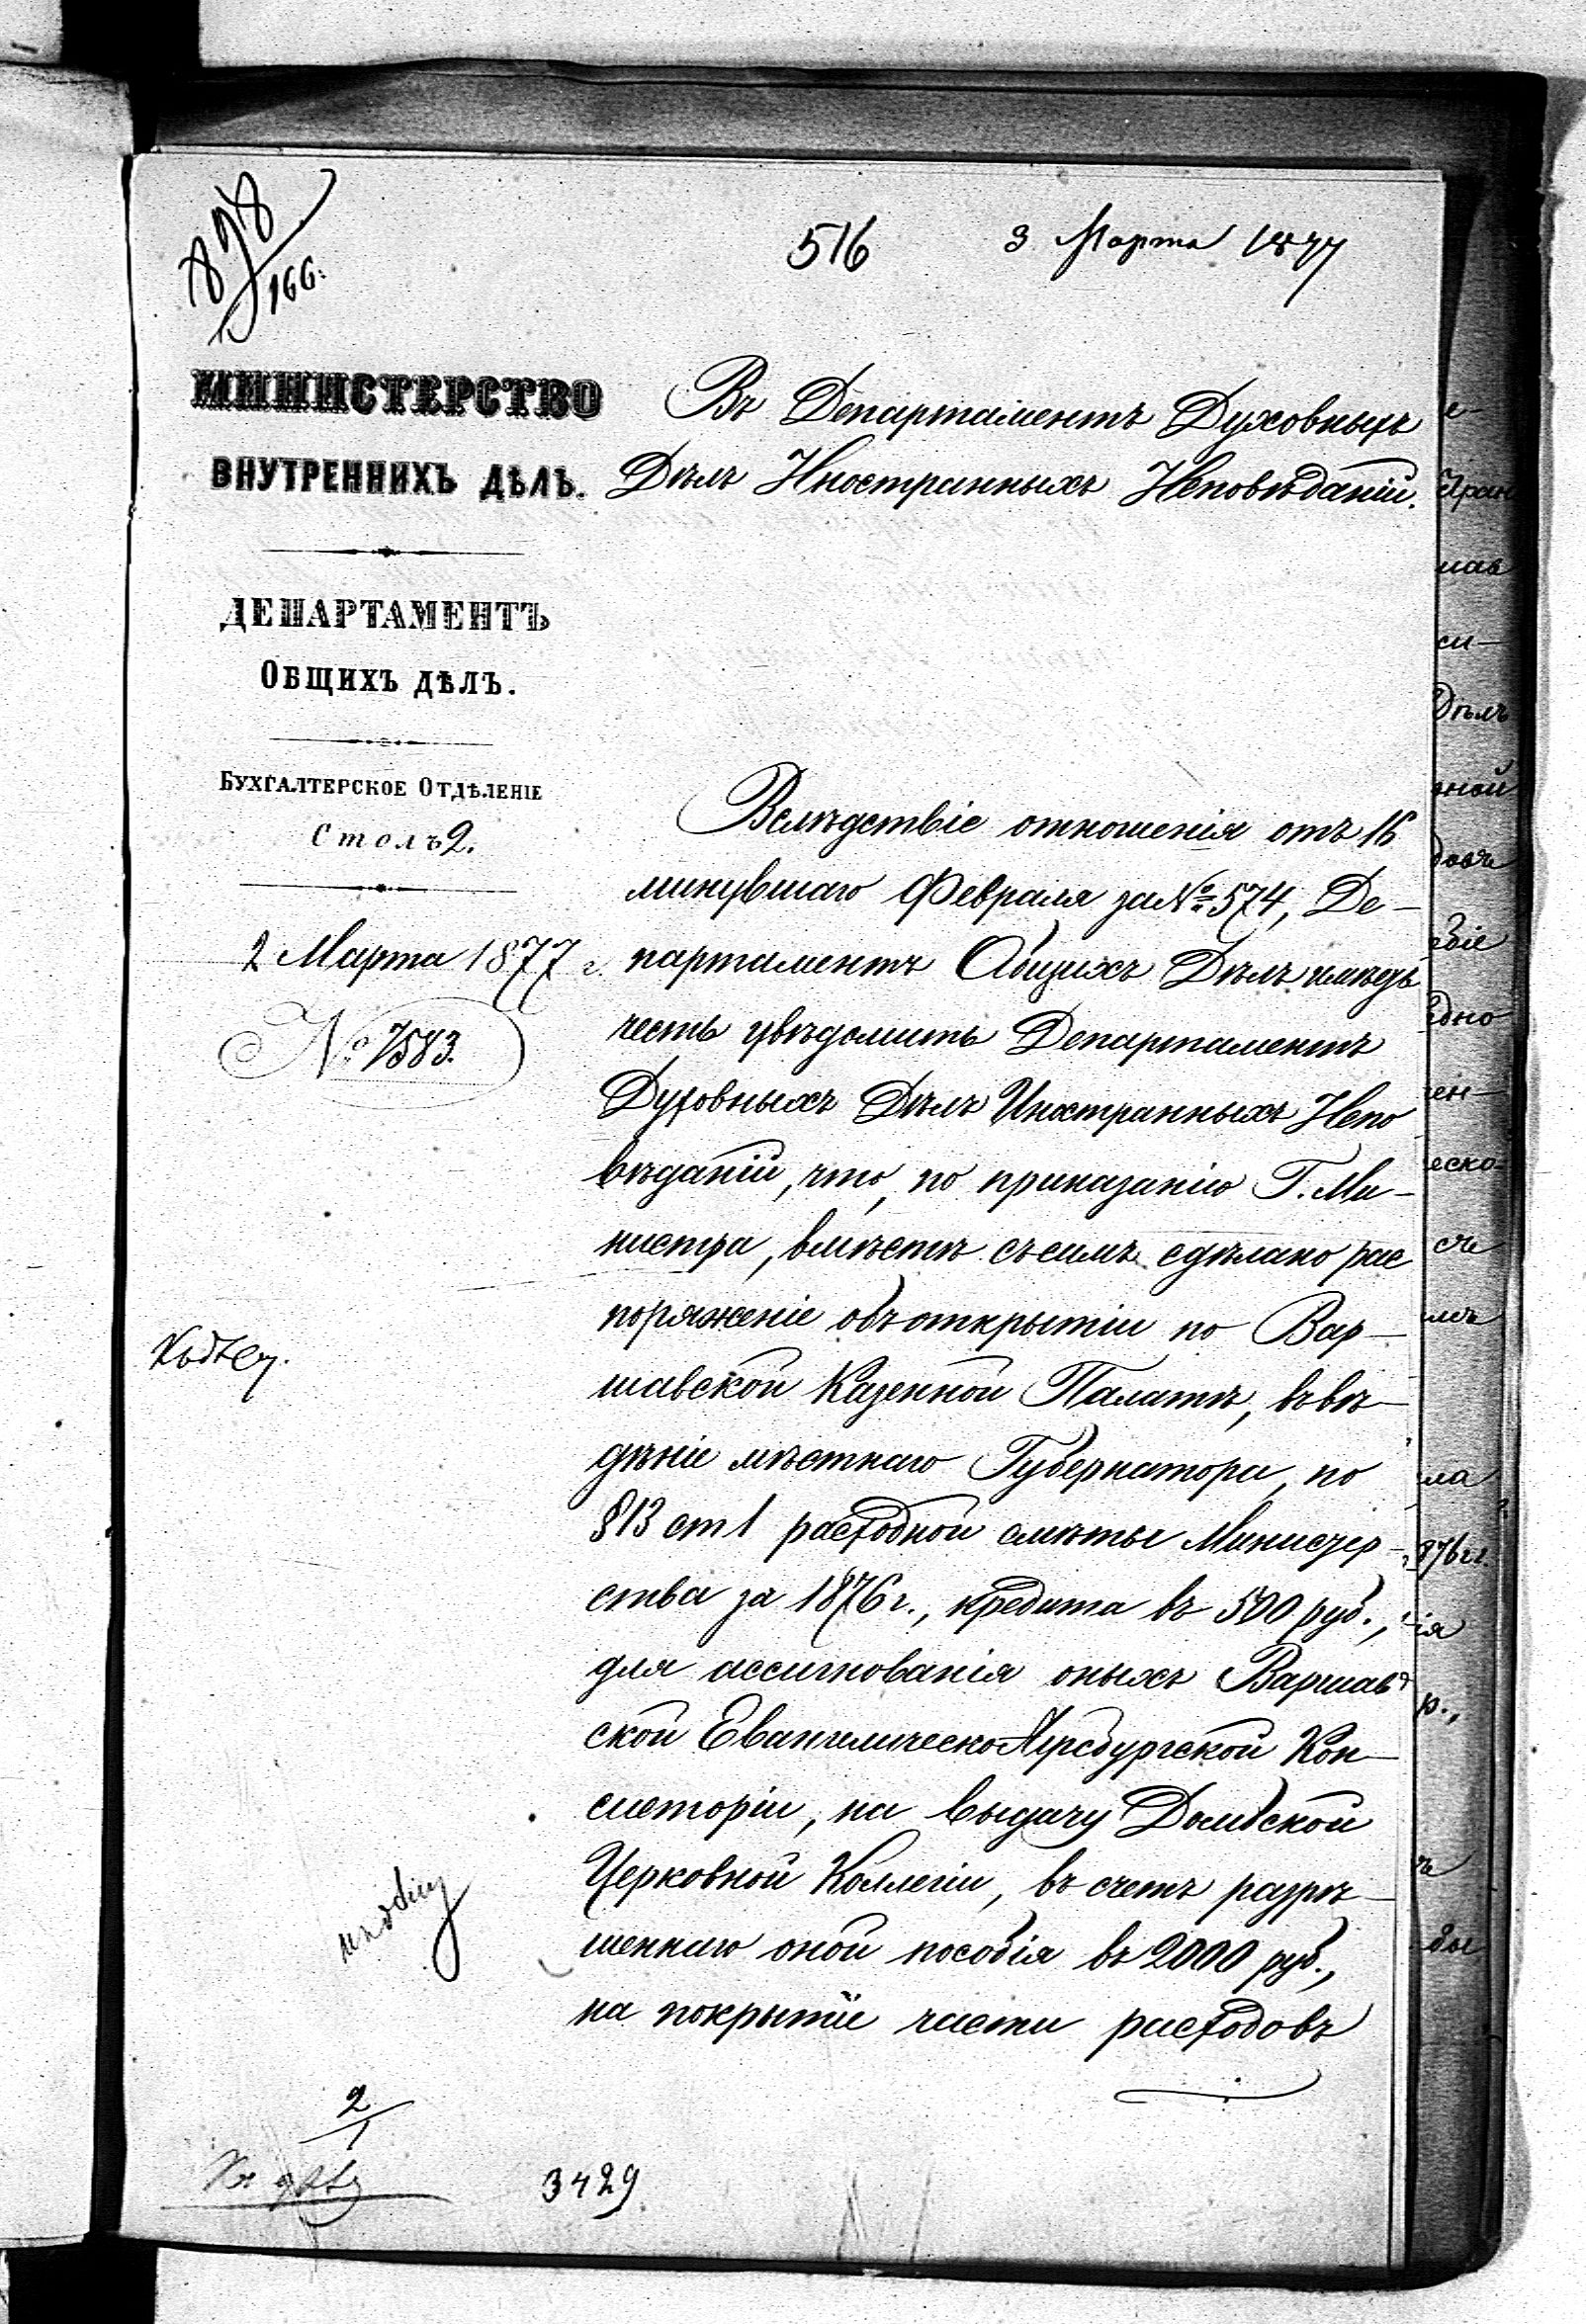 898/166.
516 3 Марта 1877
МИНИСТЕРСТВО
ВНУТРЕННИХЪ ДѢЛЪ.
ДЕПАРТАМЕНТЪ
ОБЩИХЪ ДѢЛЪ.
БУХГАЛТЕРСКОЕ ОТДѢЛЕНІЕ
Столъ 2.
2 Марта 1877 г.
№ 7583.
Въ Департаментъ Духовныхъ
Дѣлъ Иностранныхъ Исповѣданій.
Вслѣдствіе отношенія отъ 16
минувшаго Февраля за № 574, Де-
партаментъ Общихъ Дѣлъ имѣетъ
честь увѣдомить Департаментъ
Духовныхъ Дѣлъ Иностранныхъ Испо
вѣданій, что, по приказанію Г. Ми-
нистра, вмѣстѣ съ симъ сдѣлано рас
поряженіе объ открытіи по Вар-
шавской Казенной Палатѣ, въ вѣ-
дѣніе мѣстнаго Губернатора, по
§ 13 ст 1 расходной смѣты Министер-
ства за 1876 г., кредита въ 500 руб.,
для ассигнованія оныхъ Варшав
ской Евангелическо Аугсбургской Кон-
систоріи, на выдачу Домбской
Церковной Коллегіи, въ счетъ разрѣ-
шеннаго оной пособія въ 2000 руб.,
на покрытіе части расходовъ
Къ дѣлу.
2/1
Къ дѣлу
3429